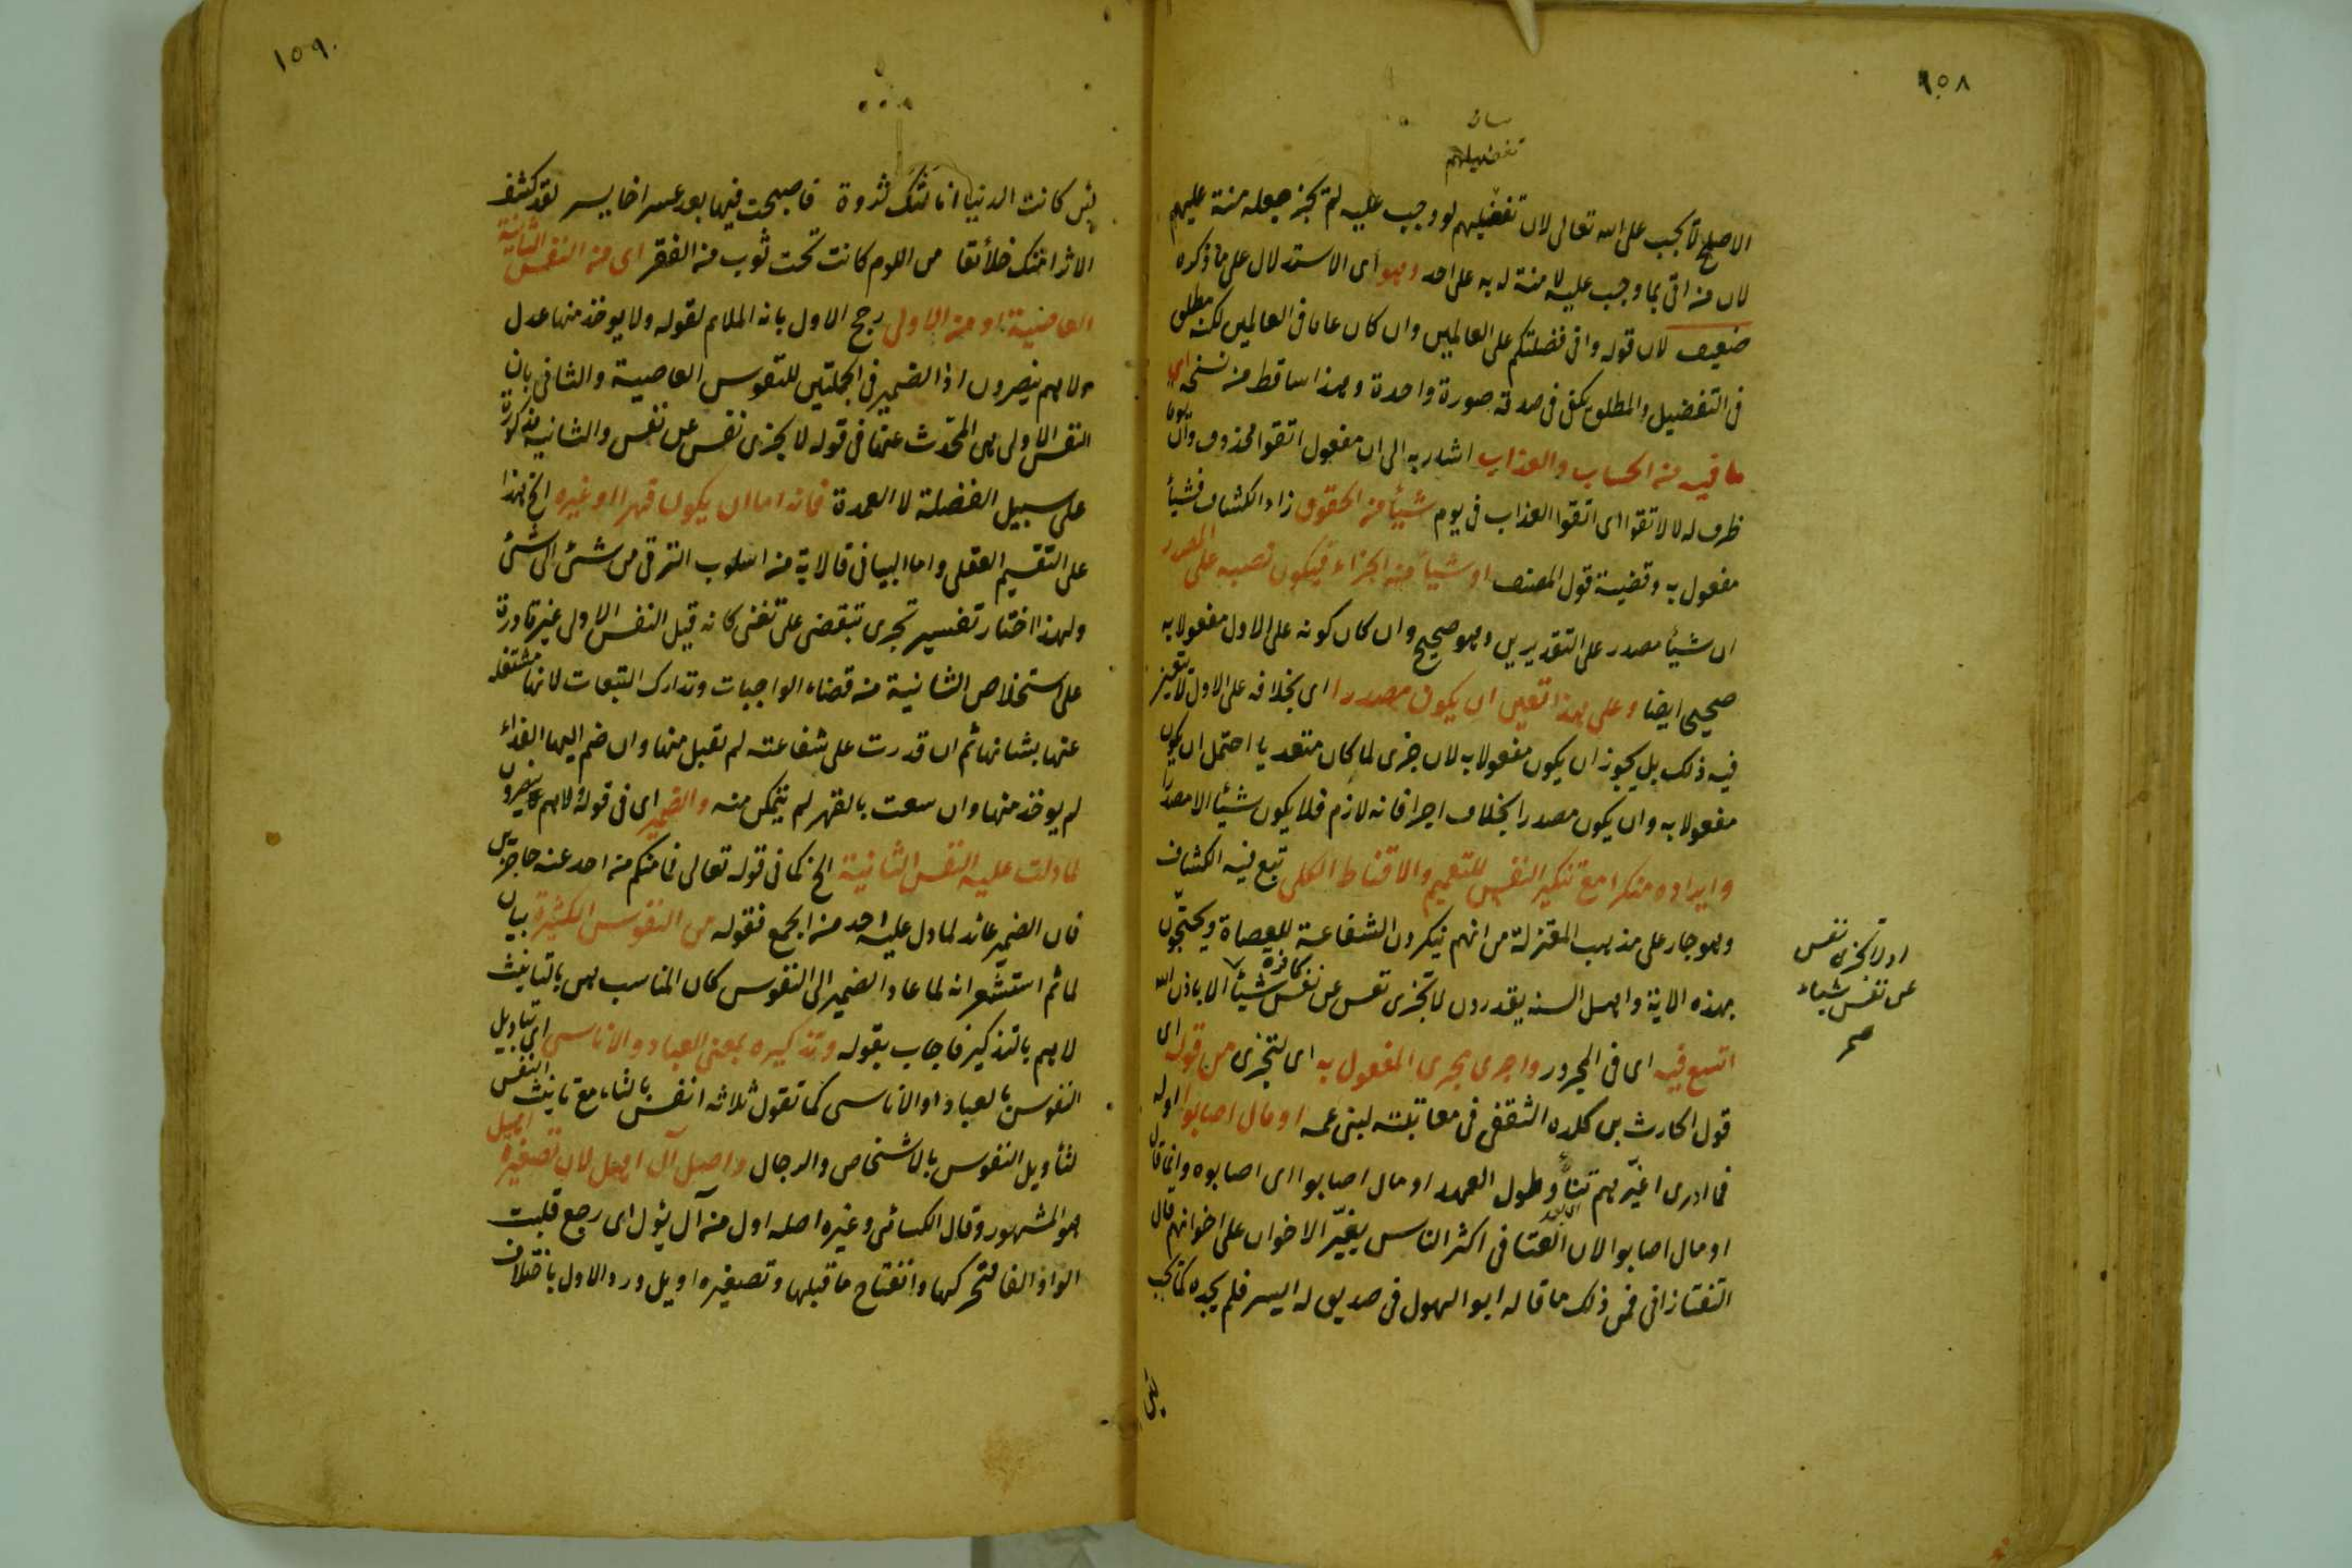 ١٥٨
بيان
تفضيلهم
الاصلح لا يجب على الله تعالى لان تفضيلهم لو وجب عليه لم يجز جعله منة عليهم
لان من اتى بما وجب عليه لا منة له به على احد وهو اى الاستدلال على ما ذكره
ضعيف لان قوله وانى فضلتكم على العالمين وان كان عاما فى العالمين لكنه مطلق
فى التفضيل والمطلق يكفى فى صدقه صورة واحدة وهذا ساقط من نسخ اى
ما فيه من الحساب والعذاب اشار به الى ان مفعول اتقوا محذوف وان يوما
ظرف له لا لاتقوا اى اتقوا العذاب فى يوم شيئا من الحقوق زاد الكشاف فشيئا
مفعول به وقضية قول المصنف او شيئا من الجزاء فيكون نصبه على المصدر
ان شيئا مصدر على التقديرين وهو صحيح وان كان كونه على الاول مفعولا به
صحيحا ايضا وعلى هذا تعين ان يكون مصدرا اى بخلافه على الاول لا يتعين
فيه ذلك بل يجوز ان يكون مفعولا به لان جزى لما كان متعديا احتمل ان يكون
مفعولا به وان يكون مصدرا بخلاف اجزا فانه لازم فلا يكون شيئا الا مصدرا
وايراده منكرا مع تنكير النفس للتعميم والاقناط الكلى تبع فيه الكشاف
وهو جار على مذهب المعتزلة من انهم ينكرون الشفاعة للعصاة ويحتجون
بهذه الاية واهل السنه يقدرون لا تجزى نفس عن نفس كافرة شيئا الا باذن الله
او لا تجزى نفس
عن نفس شيئا
صح
اتسع فيه اى فى المجرور واجرى مجرى المفعول به اى لتجزى من قوله اى
قول الحارث بن كلده الثقفى فى معاتبته لبنى عمه او مال اصابوا اوله
فما ادرى اغيرهم تناء وطول العهد او مال اصابوا اى اصابوه وانما قال
او مال اصابوا لان الغنا فى اكثر الناس يغير الاخوان على اخوانهم قال
التفتازانى فمن ذلك ما قاله ابو الهول فى صديق له ايسر فلم يجده كما يحب
لئن
١٥٩
لئن كانت الدنيا انالتك ثروة فاصبحت فيها بعد عسر اخا يسر لقد كشف
الاثراء منك خلائقا من اللوم كانت تحت ثوب من الفقر اى من النفس الثانية
العاصية او من الاولى رجح الاول بانه الملائم لقوله ولا يوخذ منها عدل
ولا هم ينصرون اذ الضمير فى الجملتين للنفوس العاصية والثانى بان
النفس الاولى هى المحدث عنها فى قوله لا يجزى نفس عن نفس والثانيه مذكورة
على سبيل الفضلة لا العمدة فانه اما ان يكون قهرا او غيره الخ هذا
على التقسيم العقلى واما البيانى فالاية من اسلوب الترقى من شئ الى شئ
ولهذا اختار تفسير تجزى بتقضى على تغنى كانه قيل النفس الاولى غير قادرة
على استخلاص الثانية من قضاء الواجبات وتدارك التبعات لانها مشتغله
عنها بشانها ثم ان قدرت على شفاعته لم تقبل منها وان ضم اليها الفداء
لم يوخذ منها وان سعت بالقهر لم يتمكن منه والضمير اى فى قوله لا هم ينصرون
لما دلت عليه النفس الثانية الخ كما فى قوله تعالى فما منكم من احد عنه حاجزين
فان الضمير عائد لما دل عليه احد من الجمع فقوله من النفوس الكثيرة بيان
لما ثم استشعر انه لما عاد الضمير الى النفوس كان المناسب هن بالتانيث
لا هم بالتذكير فاجاب بقوله وتذكيره بمعنى العباد والاناسى اى بتاويل
النفوس بالعباد او الاناسى كما تقول ثلاثه انفس بالتاء مع تانيث النفس
لتأويل النفوس بالاشخاص والرجال واصل آل اهل لان تصغيره اهيل
هو المشهور وقال الكسائى وغيره اصله اول من آل يئول اى رجع قلبت
الواو الفا لتحركها وانفتاح ما قبلها وتصغيره اويل ورد الاول باختلاف